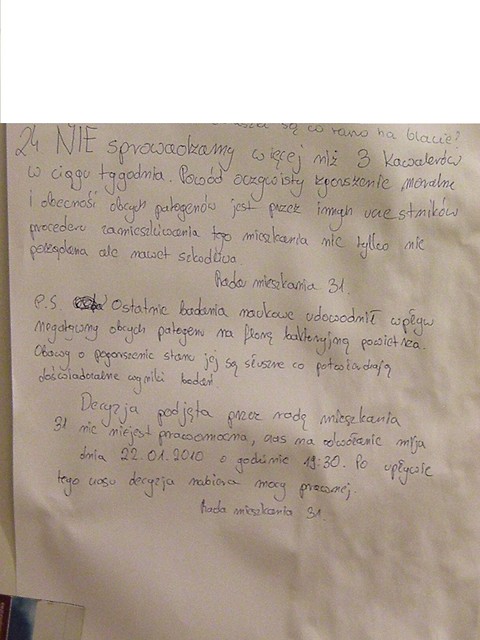 są co rano na blacie?
24 NIE sprowadzamy więcej niż 3 kawalerów
w ciągu tygodnia. Powód oczywisty zgorszenie moralne
i obecności obcych patogenów jest przez innych uczestników
procederu zamieszkiwania tego mieszkania nie tylko nie
porządana ale nawet szkodliwa
Rada mieszkania 31.
P.S. Ostatnie badania naukowe udowodnił wpływ
negatywny obcych patogenu na florę bakteryjną powietrza.
Obawy o pogorszenie stanu jej są słuszne co potwierdzają
doświadczalne wyniki badań
Decyzja podjęta przez radę mieszkania
31 nie niejest prawomocna, czas na odwołanie mija
dnia 22.01.2010 o godzinie 19:30. Po upływie
tego czasu decyzja nabiera mocy prawnej.
Rada mieszkania 31.